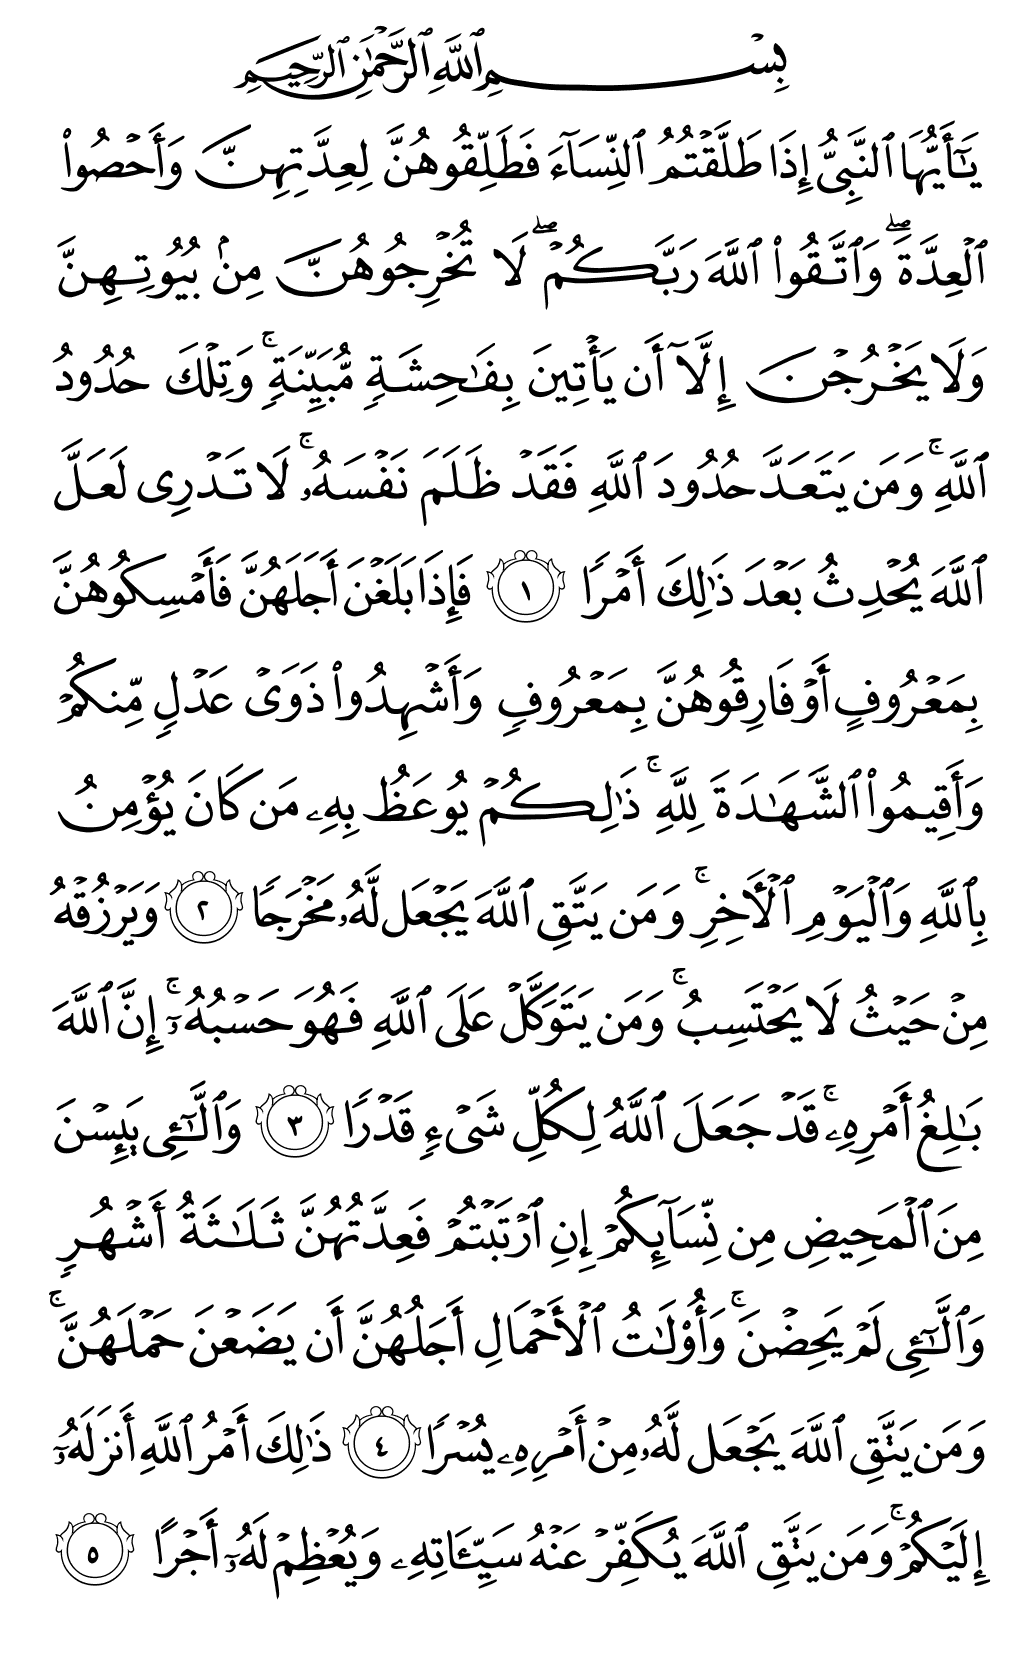 بِسْمِ ٱللَّهِ ٱلرَّحْمَٰنِ ٱلرَّحِيمِ
يَٰٓأَيُّهَا ٱلنَّبِىُّ إِذَا طَلَّقْتُمُ ٱلنِّسَآءَ فَطَلِّقُوهُنَّ لِعِدَّتِهِنَّ وَأَحْصُوا۟
ٱلْعِدَّةَ ۖ وَٱتَّقُوا۟ ٱللَّهَ رَبَّكُمْ ۖ لَا تُخْرِجُوهُنَّ مِنۢ بُيُوتِهِنَّ
وَلَا يَخْرُجْنَ إِلَّآ أَن يَأْتِينَ بِفَٰحِشَةٍ مُّبَيِّنَةٍ ۚ وَتِلْكَ حُدُودُ
ٱللَّهِ ۚ وَمَن يَتَعَدَّ حُدُودَ ٱللَّهِ فَقَدْ ظَلَمَ نَفْسَهُۥ ۚ لَا تَدْرِى لَعَلَّ
ٱللَّهَ يُحْدِثُ بَعْدَ ذَٰلِكَ أَمْرًا ١ فَإِذَا بَلَغْنَ أَجَلَهُنَّ فَأَمْسِكُوهُنَّ
بِمَعْرُوفٍ أَوْ فَارِقُوهُنَّ بِمَعْرُوفٍ وَأَشْهِدُوا۟ ذَوَىْ عَدْلٍ مِّنكُمْ
وَأَقِيمُوا۟ ٱلشَّهَٰدَةَ لِلَّهِ ۚ ذَٰلِكُمْ يُوعَظُ بِهِۦ مَن كَانَ يُؤْمِنُ
بِٱللَّهِ وَٱلْيَوْمِ ٱلْـَٔاخِرِ ۚ وَمَن يَتَّقِ ٱللَّهَ يَجْعَل لَّهُۥ مَخْرَجًا ٢ وَيَرْزُقْهُ
مِنْ حَيْثُ لَا يَحْتَسِبُ ۚ وَمَن يَتَوَكَّلْ عَلَى ٱللَّهِ فَهُوَ حَسْبُهُۥٓ ۚ إِنَّ ٱللَّهَ
بَٰلِغُ أَمْرِهِۦ ۚ قَدْ جَعَلَ ٱللَّهُ لِكُلِّ شَىْءٍ قَدْرًا ٣ وَٱلَّٰٓـِٔى يَئِسْنَ
مِنَ ٱلْمَحِيضِ مِن نِّسَآئِكُمْ إِنِ ٱرْتَبْتُمْ فَعِدَّتُهُنَّ ثَلَٰثَةُ أَشْهُرٍ
وَٱلَّٰٓـِٔى لَمْ يَحِضْنَ ۚ وَأُو۟لَٰتُ ٱلْأَحْمَالِ أَجَلُهُنَّ أَن يَضَعْنَ حَمْلَهُنَّ ۚ
وَمَن يَتَّقِ ٱللَّهَ يَجْعَل لَّهُۥ مِنْ أَمْرِهِۦ يُسْرًا ٤ ذَٰلِكَ أَمْرُ ٱللَّهِ أَنزَلَهُۥٓ
إِلَيْكُمْ ۚ وَمَن يَتَّقِ ٱللَّهَ يُكَفِّرْ عَنْهُ سَيِّـَٔاتِهِۦ وَيُعْظِمْ لَهُۥٓ أَجْرًا ٥